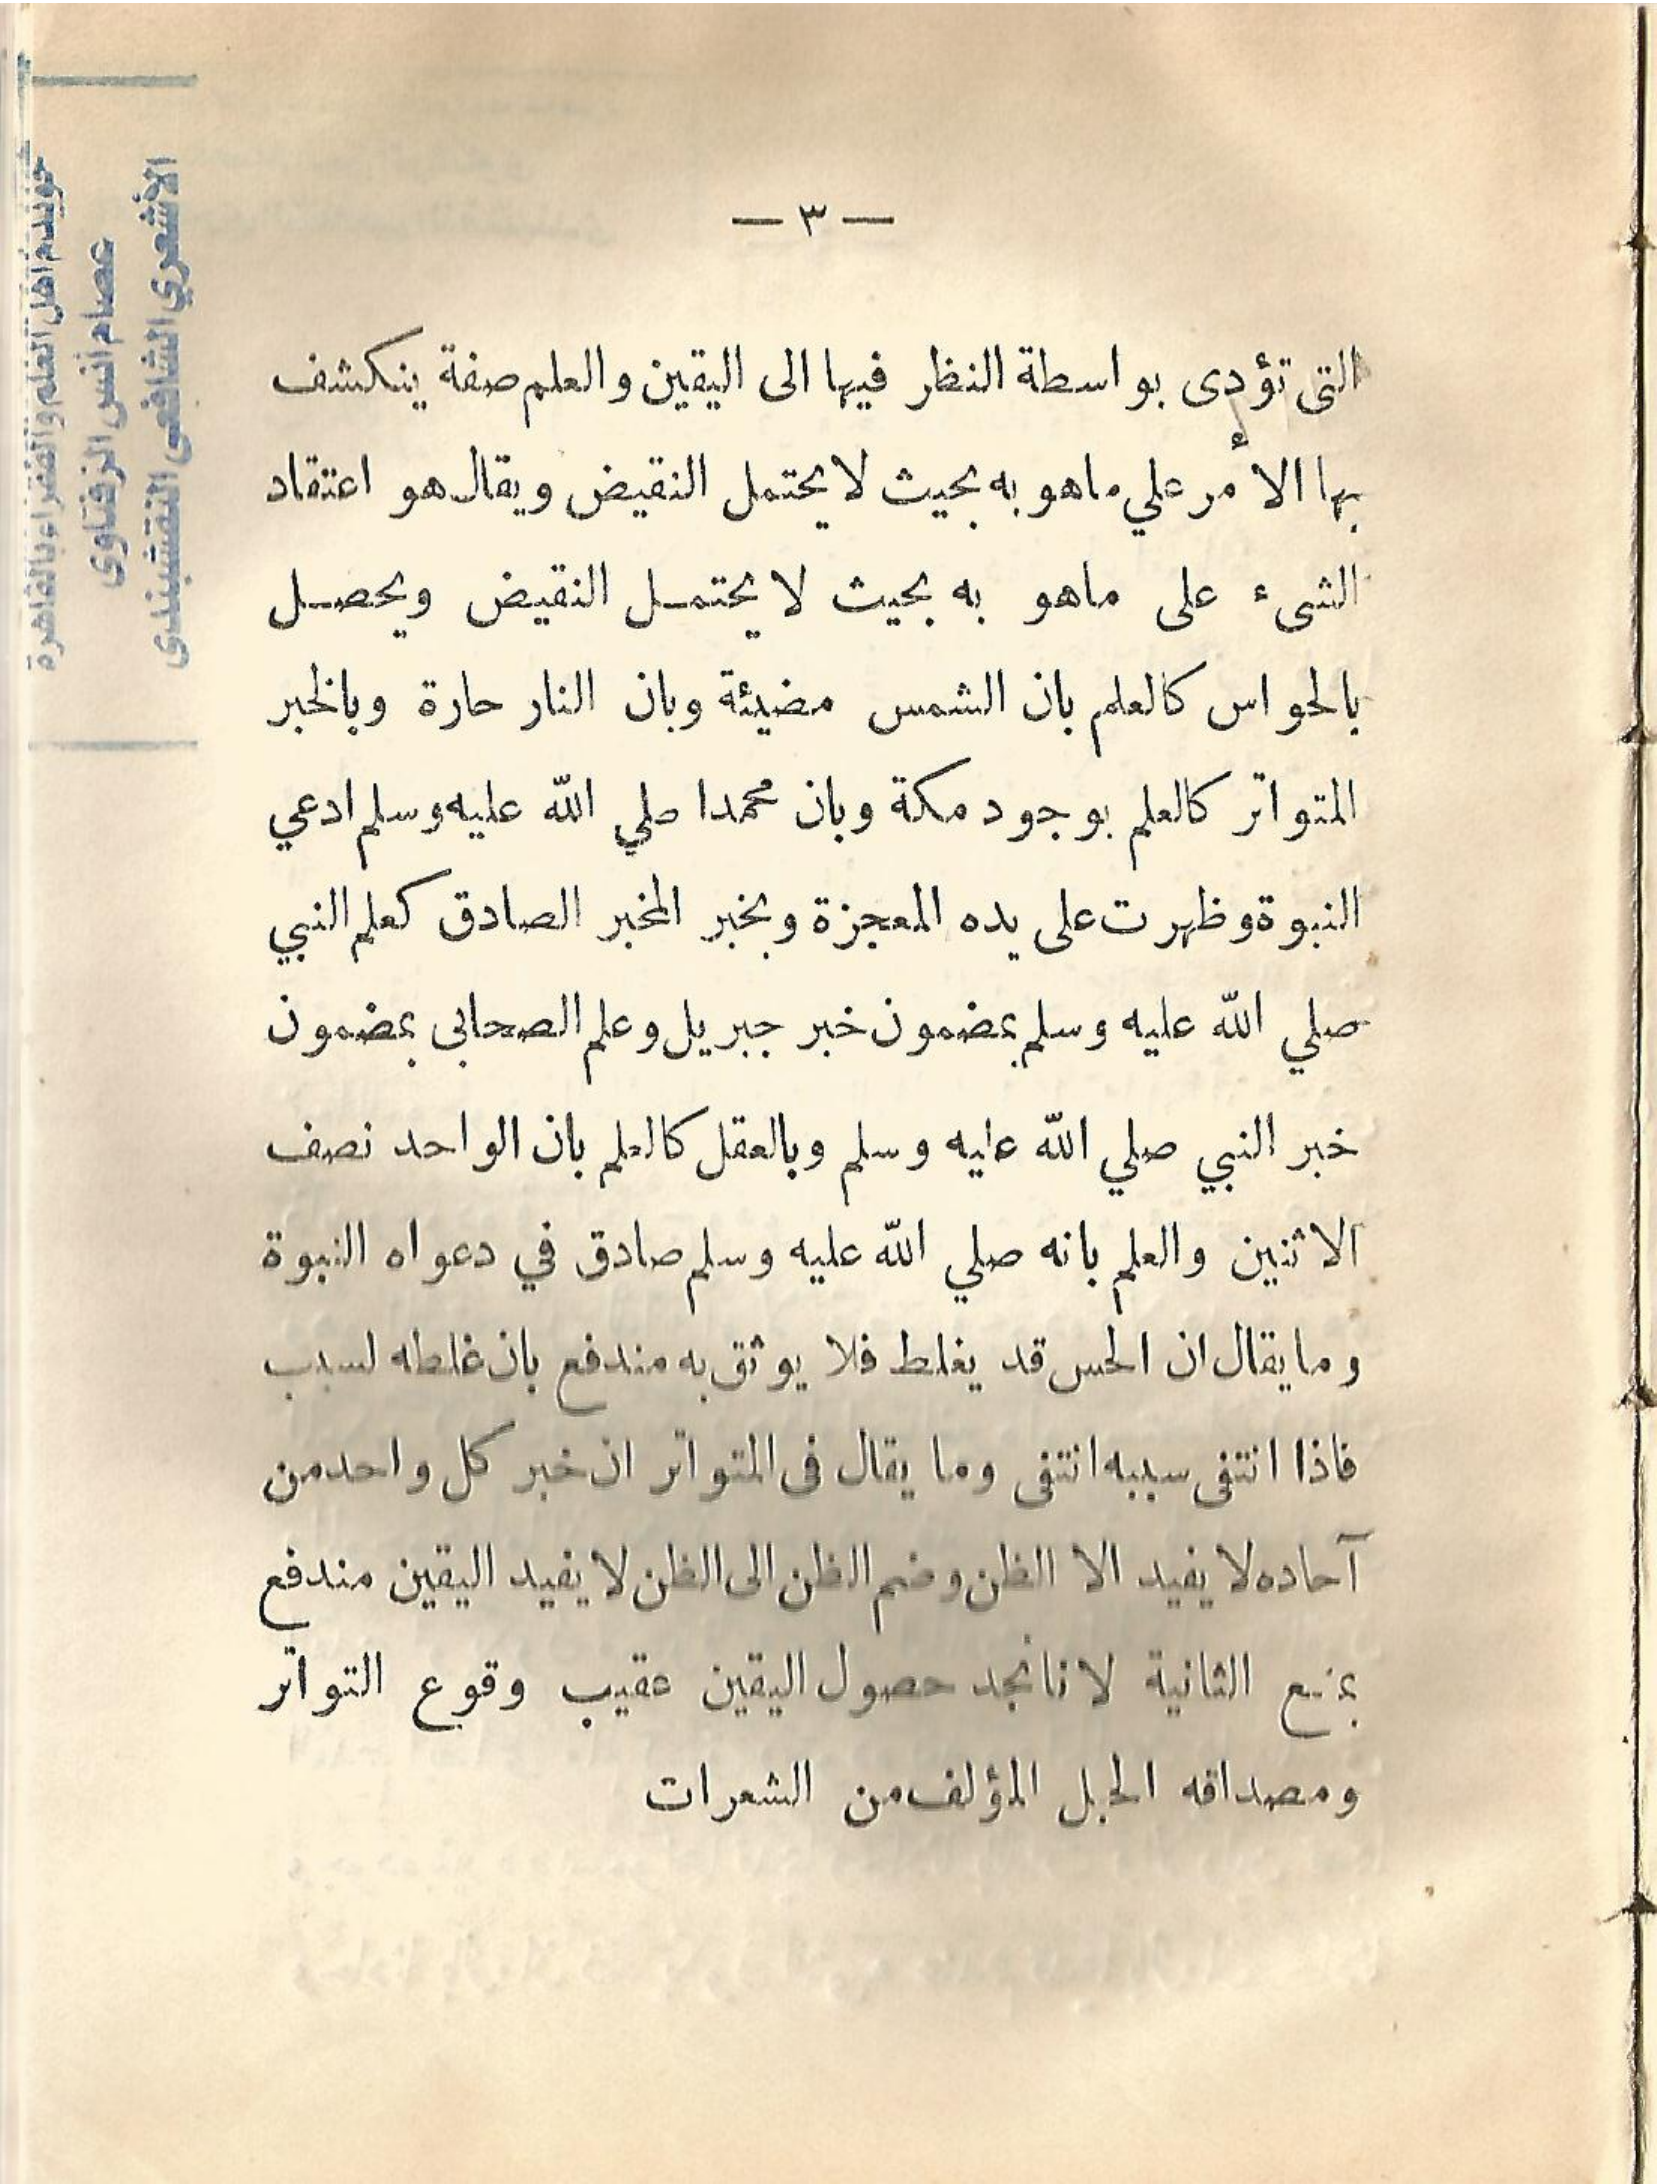 — ٣ —
التى تؤدى بواسطة النظر فيها الى اليقين والعلم صفة ينكشف
بها الأمر علي ماهو به بحيث لا يحتمل النقيض ويقال هو اعتقاد
الشىء على ماهو به بحيث لا يحتمل النقيض ويحصل
بالحواس كالعلم بان الشمس مضيئة وبان النار حارة وبالخبر
المتواتر كالعلم بوجود مكة وبان محمدا صلي الله عليه وسلم ادعي
النبوة وظهرت على يده المعجزة وبخبر المخبر الصادق كعلم النبي
صلي الله عليه وسلم بمضمون خبر جبريل وعلم الصحابى بمضمون
خبر النبي صلي الله عليه وسلم وبالعقل كالعلم بان الواحد نصف
الاثنين والعلم بانه صلي الله عليه وسلم صادق في دعواه النبوة
وما يقال ان الحس قد يغلط فلا يوثق به مندفع بان غلطه لسبب
فاذا انتفى سببه انتفى وما يقال فى المتواتر ان خبر كل واحد من
آحاده لا يفيد الا الظن وضم الظن الى الظن لا يفيد اليقين مندفع
بمنع الثانية لانا نجد حصول اليقين عقيب وقوع التواتر
ومصداقه الحبل المؤلف من الشعرات
خويدم اهل العلم والفقراء بالقاهرة
عصام انس الزفتاوى
الأشعري الشافعى النقشبندى